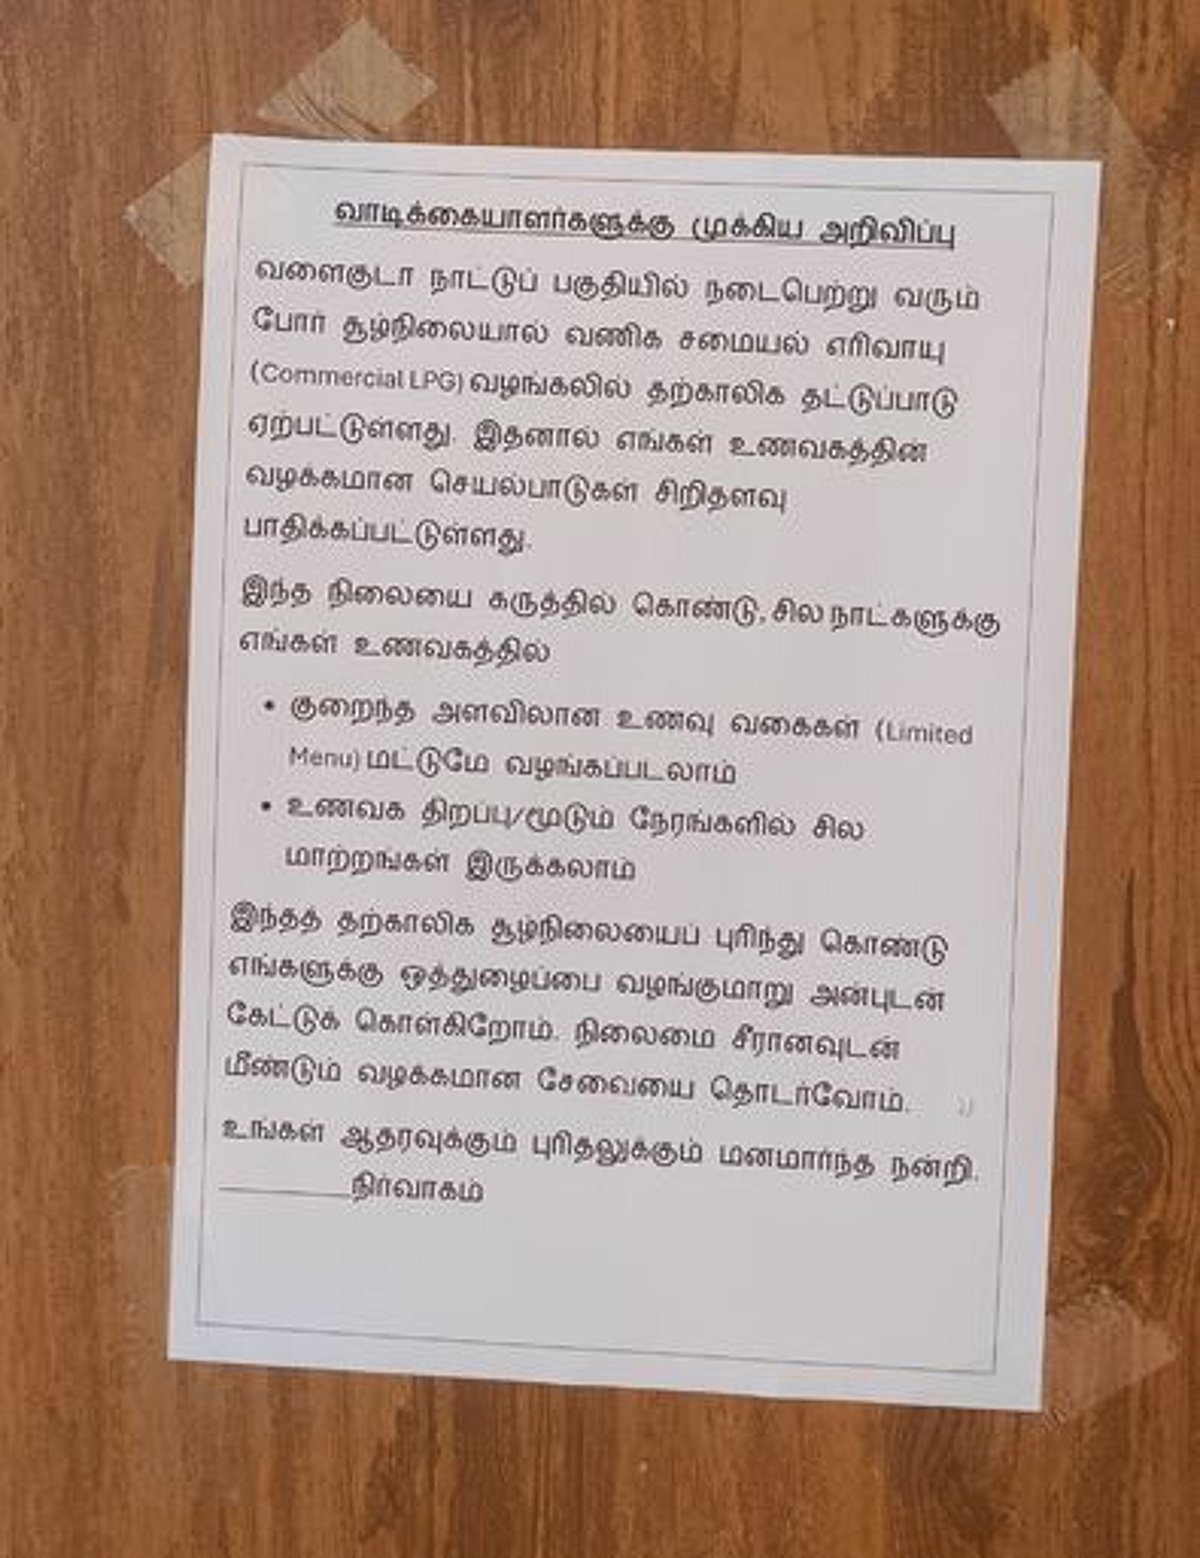 வாடிக்கையாளர்களுக்கு முக்கிய அறிவிப்பு
வளைகுடா நாட்டுப் பகுதியில் நடைபெற்று வரும்
போர் சூழ்நிலையால் வணிக சமையல் எரிவாயு
(Commercial LPG) வழங்கலில் தற்காலிக தட்டுப்பாடு
ஏற்பட்டுள்ளது. இதனால் எங்கள் உணவகத்தின்
வழக்கமான செயல்பாடுகள் சிறிதளவு
பாதிக்கப்பட்டுள்ளது.
இந்த நிலையை கருத்தில் கொண்டு, சில நாட்களுக்கு
எங்கள் உணவகத்தில்
• குறைந்த அளவிலான உணவு வகைகள் (Limited
Menu) மட்டுமே வழங்கப்படலாம்
• உணவக திறப்பு/மூடும் நேரங்களில் சில
மாற்றங்கள் இருக்கலாம்
இந்தத் தற்காலிக சூழ்நிலையைப் புரிந்து கொண்டு
எங்களுக்கு ஒத்துழைப்பை வழங்குமாறு அன்புடன்
கேட்டுக் கொள்கிறோம். நிலைமை சீரானவுடன்
மீண்டும் வழக்கமான சேவையை தொடர்வோம்.
உங்கள் ஆதரவுக்கும் புரிதலுக்கும் மனமார்ந்த நன்றி.
__________நிர்வாகம்